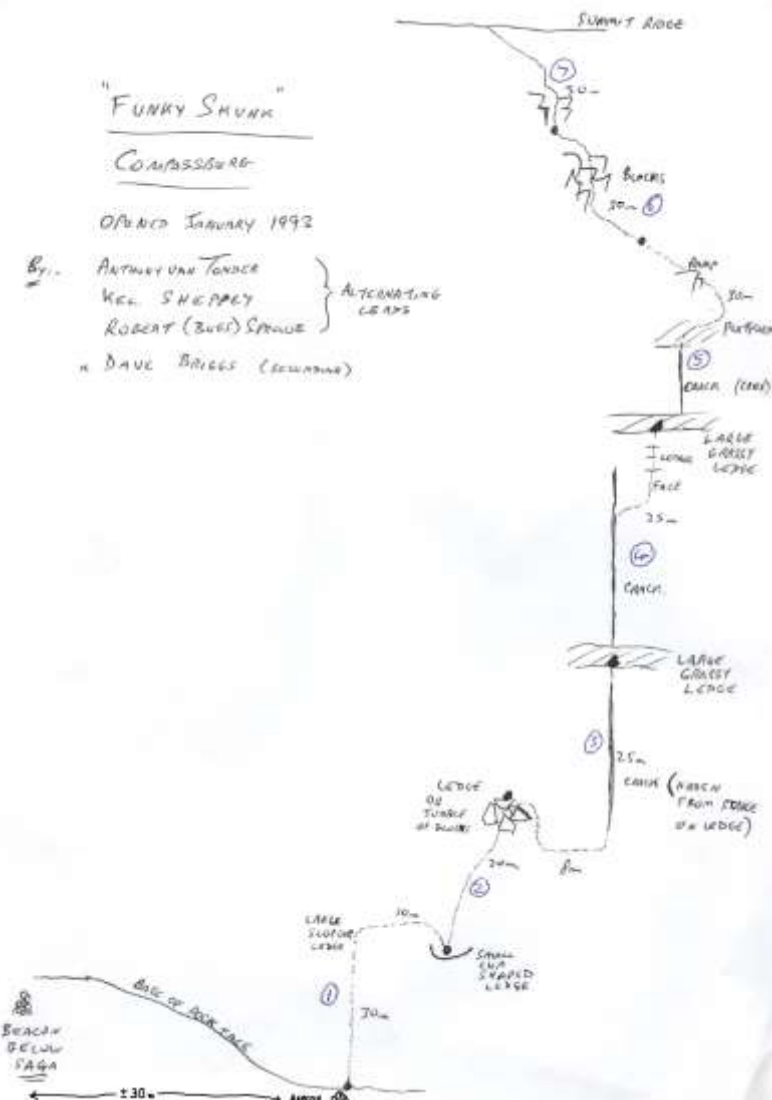 SUMMIT RIDGE
"FUNKY SKUNK"
COMPASSBERG
OPENED JANUARY 1993
By:- ANTHONY VAN TONDER
KEL SHEPPEY
ROBERT (BUGS) SPROUE
ALTERNATING
LEADS
DAVE BRIGGS (SECONDING)
7
30m
BLOCKS
30m 6
RAMP
30m
PLATFORM
5
CRACK
LARGE
GRASSY
LEDGE
LEDGE
FACE
25m
4
CRACK
LARGE
GRASSY
LEDGE
3
25m
CRACK (HIDDEN
FROM STANCE
ON LEDGE)
LEDGE
OF
TUMBLE
OF BLOCKS
20m
8m
2
LARGE
SLOPING
LEDGE
10m
SMALL
CUP
SHAPED
LEDGE
1
30m
BASE OF ROCK FACE
BEACON
BELOW
SAGA
±30m